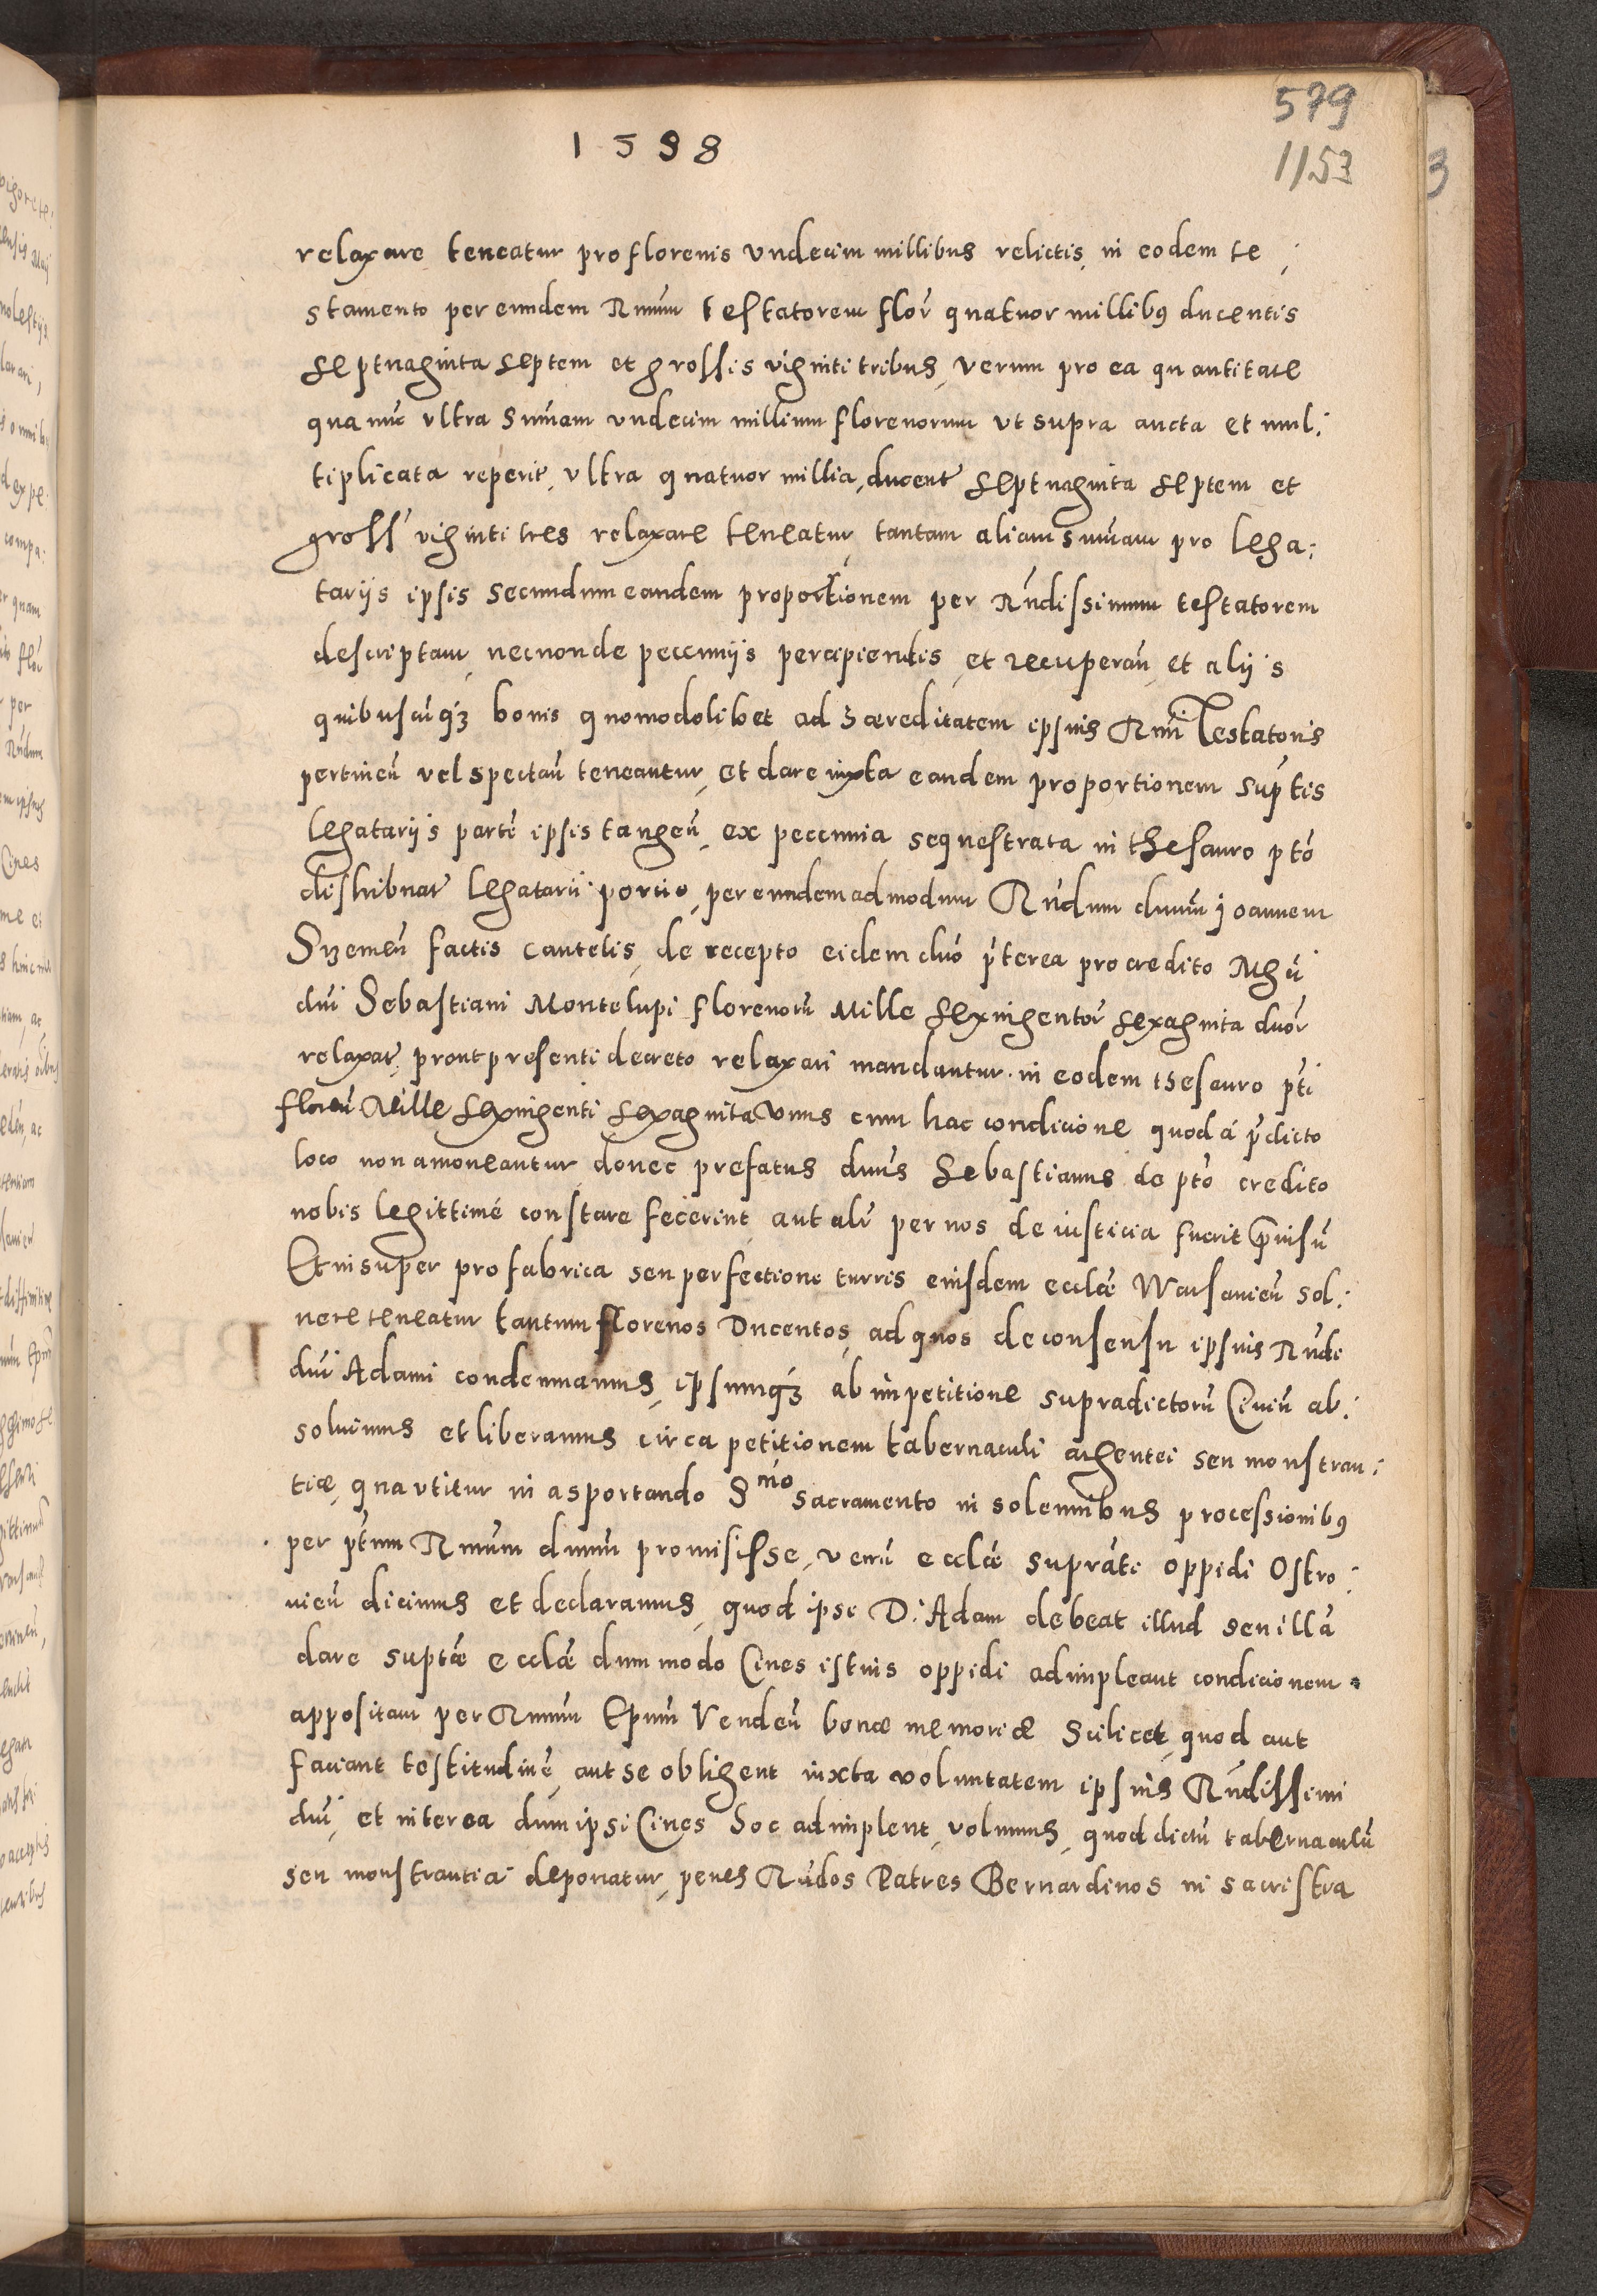 579
1598
1153
relaxare teneatur pro florenis vndecim millibus relictis, in eodem te:
stamento per eundem Rmum testatorem flor quatuor millibus ducentis
septuaginta septem et grossis viginti tribus, verum pro ea quantitate
qua nuc vltra Sumam vndecim millium florenorum vt supra aucta et mul:
tiplicata reperit, vltra quatuor millia, ducent septuaginta septem et
gross viginti tres relaxare teneatur, tantam aliam sumam pro lega:
tarijs ipsis secundum eandem proportionem per Rndissimum testatorem
descriptam, necnon de peccunijs percipiendis, et recuperan, et alijs
quibuscuq3 bonis quomodolibet ad haereditatem ipsius Rmi Testatoris
pertinen vel spectan teneantur, et dare iuxta eandem proportionem suptis
legatarijs parte ipsis tangen, ex peccunia sequestrata in thesauro pto
distribuat legatarii portio, per eundem admodum Rndum dnum Joannem
Szemen factis cautelis, de recepto eidem dno pterea pro credito Mgci
dni Sebastiani Montelupi florenoru Mille sexingentor sexaginta duor
relaxat, prout presenti decreto relaxari mandantur. in eodem thesauro pti
floren Mille sexingenti sexaginta Vnus cum hac condicione quod a pdicto
loco non amoneantur donec prefatus dnus Sebastianus de pto credito
nobis legittimé constare fecerint, aut alr per nos de iusticia fuerit puisu
Et insuper pro fabrica seu perfectione turris eiusdem ecclae Warsauien sol:
uere teneatur tantum florenos Ducentos, ad quos de consensu ipsius Rndi
dni Adami condemnamus, ipsumq3 ab impetitione supradictoru Ciuiu ab:
soluimus et liberamus circa petitionem tabernaculi argentei seu monstran:
tiae, qua vtitur in asportando S mo sacramento in solennibus processionibus
per ptum Rmum dnum promisisse, veru ecclae suprati oppidi Ostro:
uien dicimus et declaramus, quod ipse D: Adam debeat illud seu illa
dare suptae ecclae dummodo Ciues istius oppidi adimpleant condicionem
appositam per Rmum Epum Venden bonae memoriae Scilicet quod aut
faciant testitudine, aut se obligent iuxta voluntatem ipsius Rndissimi
dni, et interea dum ipsi Ciues hoc adimplent, volumus, quod dictu tabernaculu
seu monstrantia deponatur, penes Rndos Patres Bernardinos in sacristra